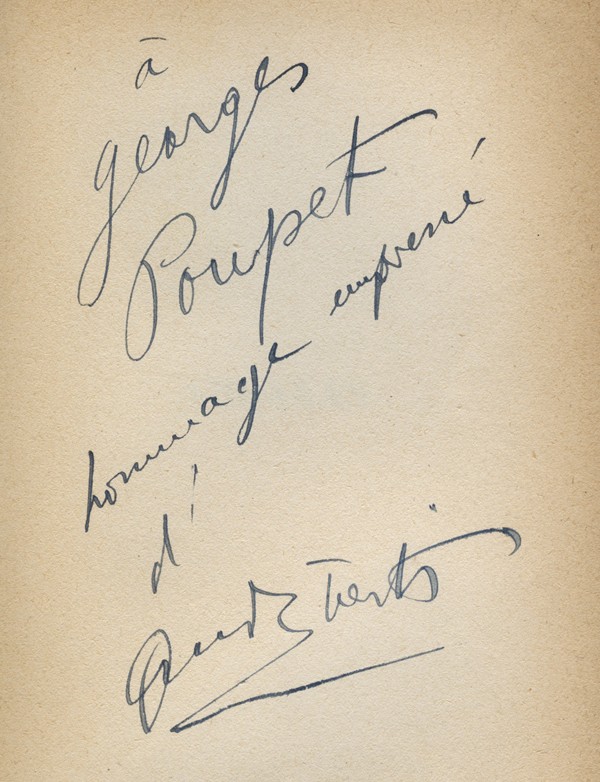 à
georges
Poupet
hommage empressé
d'
André